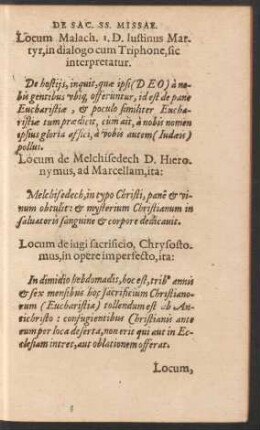 DE SAC. SS. MISSAE.
Locum Malach. 1. D. Iustinus Mar-
tyr, in dialogo cum Triphone, sic
interpretatur.
De hostijs, inquit, quæ ipsi (DEO) à no-
bis gentibus vbiq; offeruntur, id est de pane
Eucharistiæ, & poculo similiter Eucha-
ristiæ tum prædicit, cum ait, à nobis nomen
ipsius gloria affici, à vobis autem (Iudæis)
pollui.
Locum de Melchisedech D. Hiero-
nymus, ad Marcellam, ita:
Melchisedech, in typo Christi, panē & vi-
num obtulit: & mysterium Christianum in
saluatoris sanguine & corpore dedicauit.
Locum de iugi sacrificio, Chrysosto-
mus, in opere imperfecto, ita:
In dimidio hebdomadis, hoc est, trib9 annis
& sex mensibus hoc sacrificium Christiano-
rum (Eucharistia) tollendum est ab An-
tichristo: confugientibus Christianis ante
eum per loca deserta, non erit qui aut in Ec-
clesiam intret, aut oblationem offerat.
Locum,